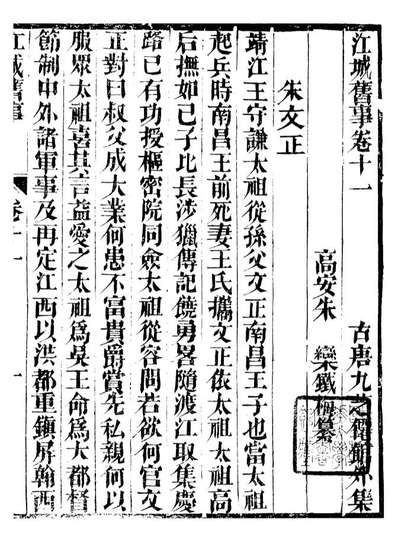 江城舊事卷十一
古唐九芝僊館外集
高安朱 欒鐵梅纂
朱文正
靖江王守謙太祖從孫父文正南昌王子也當太祖
起兵時南昌王前死妻王氏攜文正依太祖太祖高
后撫如己子比長涉獵傳記饒勇畧隨渡江取集慶
路已有功授樞密院同僉太祖從容問若欲何官文
正對曰叔父成大業何患不富貴爵賞先私親何以
服眾太祖喜其言益愛之太祖爲吳王命爲大都督
節制中外諸軍事及再定江西以洪都重鎮屏翰西
江城舊事
卷十一
一